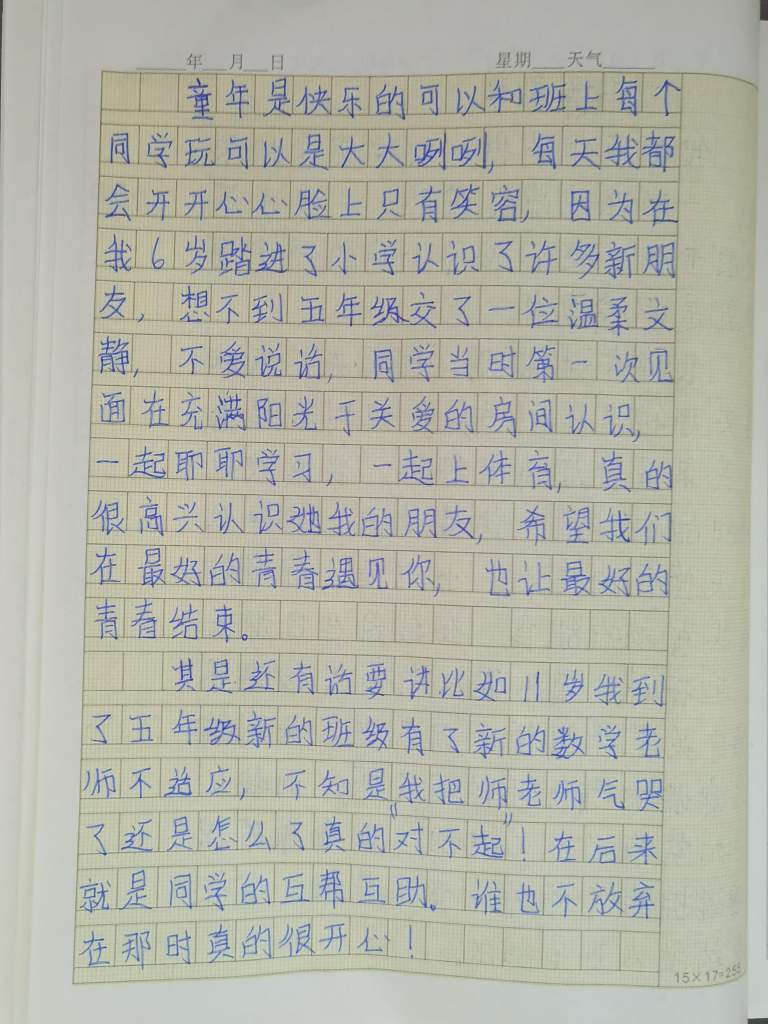 年 月 日 星期 天气
童年是快乐的可以和班上每个
同学玩可以是大大咧咧,每天我都
会开开心心脸上只有笑容,因为在
我6岁踏进了小学认识了许多新朋
友,想不到五年级交了一位温柔文
静,不爱说话,同学当时第一次见
面在充满阳光于关爱的房间认识,
一起耶耶学习,一起上体育,真的
很高兴认识她我的朋友,希望我们
在最好的青春遇见你,也让最好的
青春结束。
其是还有话要讲比如11岁我到
了五年级新的班级有了新的数学老
师不适应,不知是我把师老师气哭
了还是怎么了真的“对不起”!在后来
就是同学的互帮互助。谁也不放弃
在那时真的很开心!
15×17=255